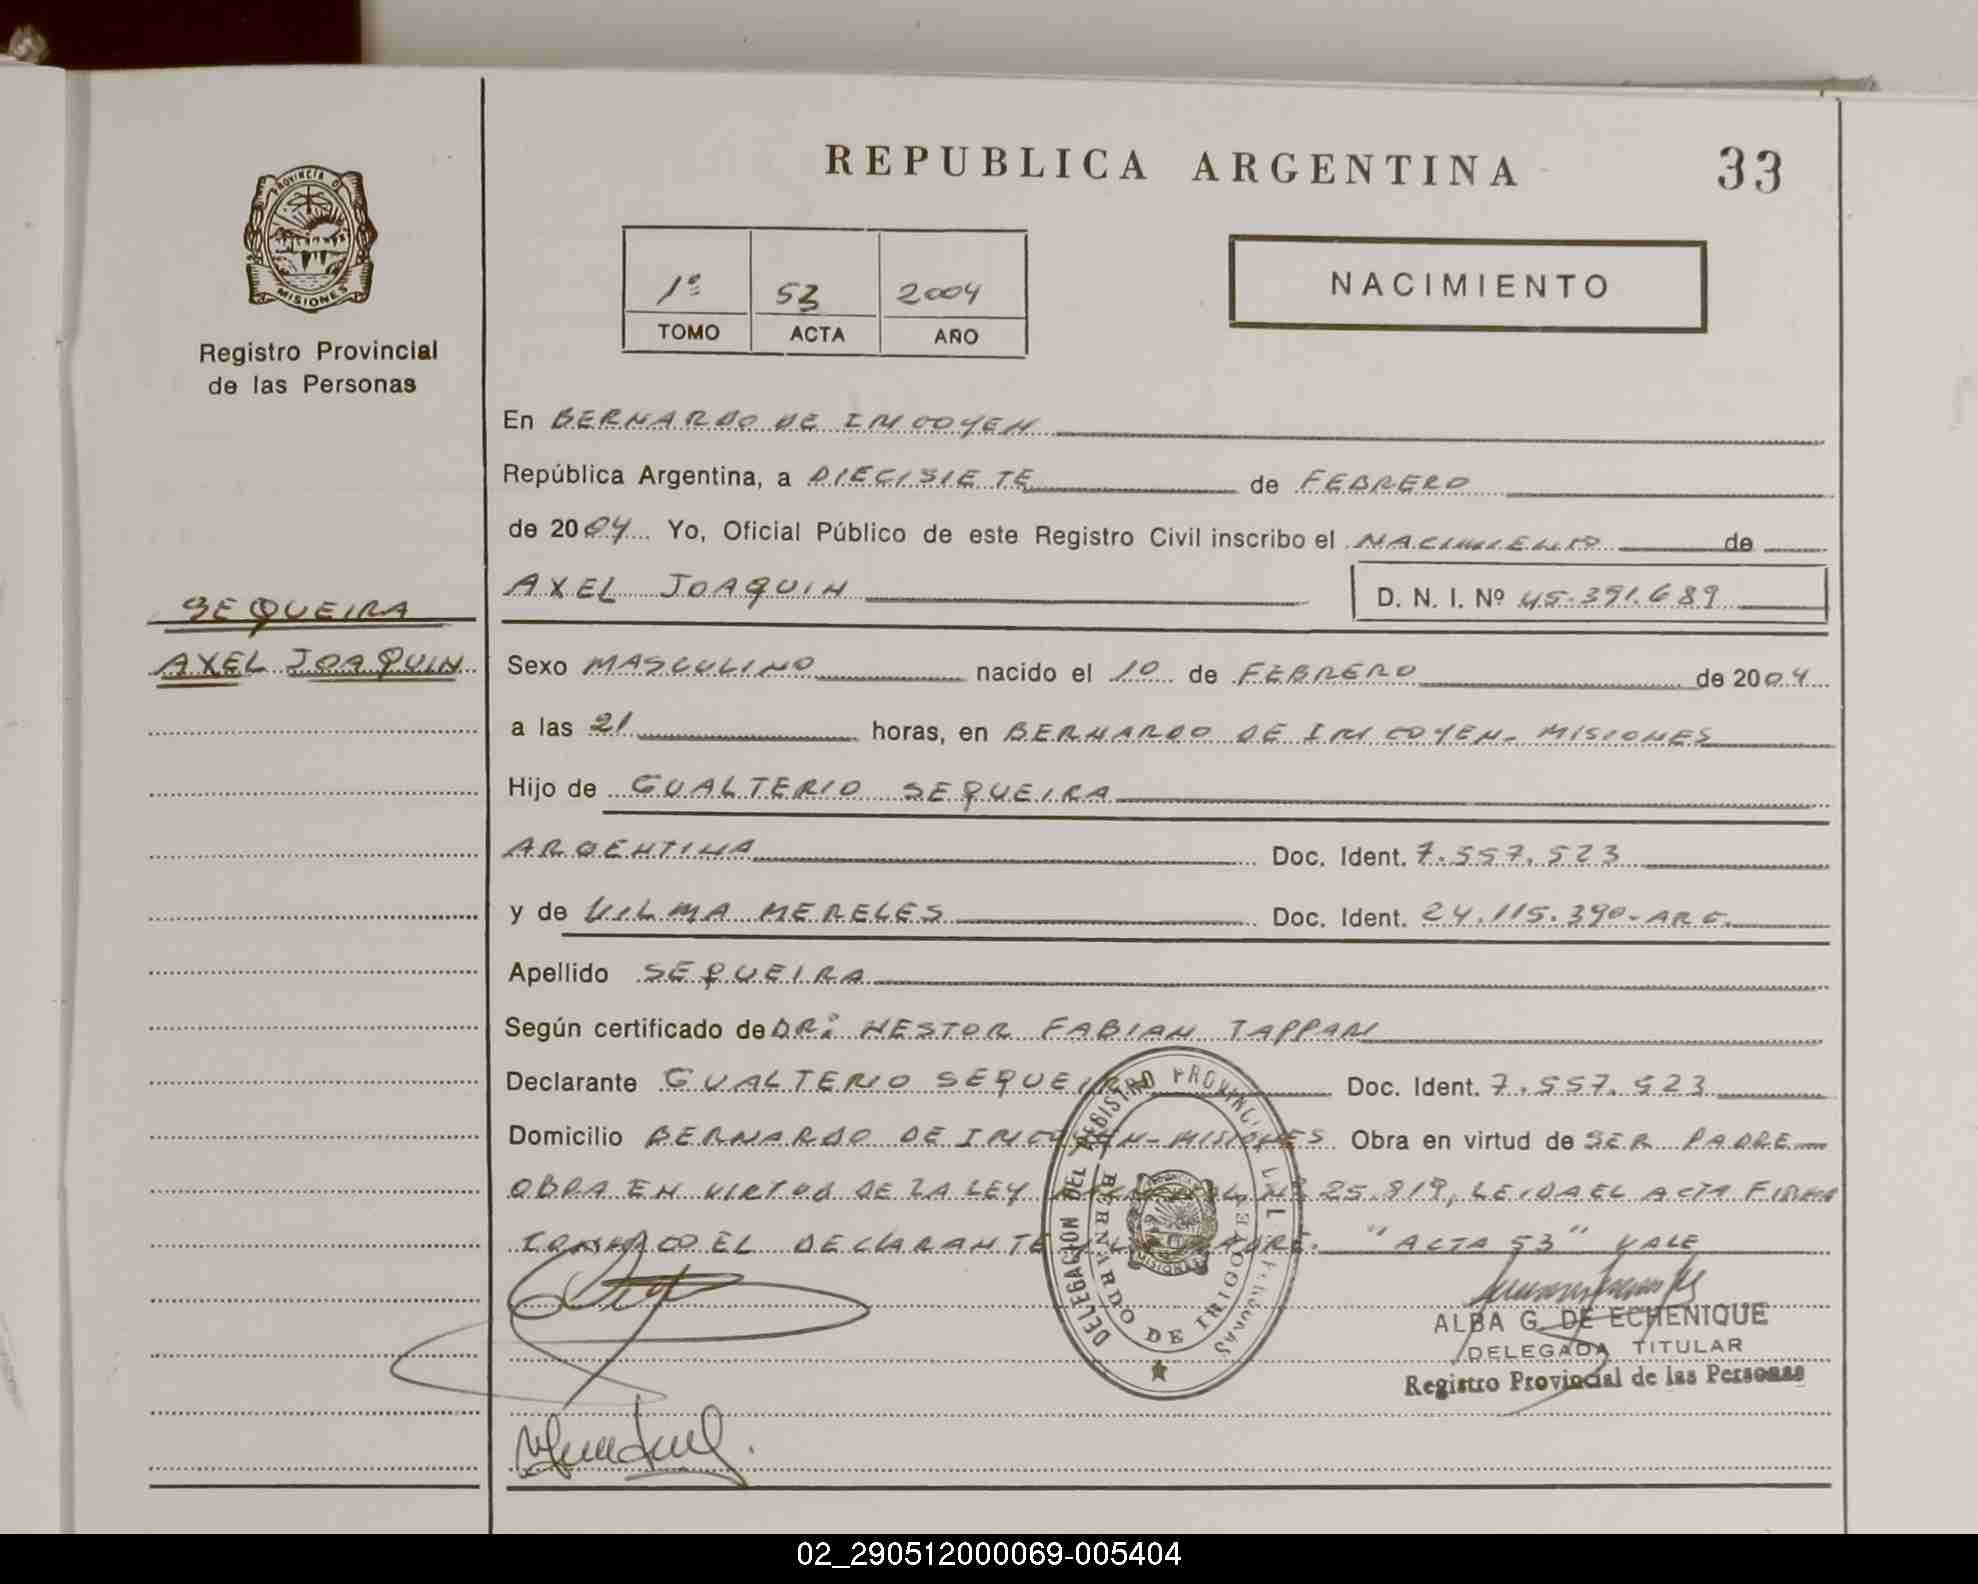 REPUBLICA ARGENTINA
33
PROVINCIA DE
MISIONES
Registro Provincial
de las Personas
1º 53 2004
TOMO ACTA AÑO
NACIMIENTO
En BERNARDO DE IRIGOYEN
República Argentina, a DIECISIETE de FEBRERO
de 2004 Yo, Oficial Público de este Registro Civil inscribo el NACIMIENTO de
AXEL JOAQUIN D. N. I. Nº 45.391.689
SEQUEIRA
AXEL JOAQUIN
Sexo MASCULINO nacido el 10 de FEBRERO de 2004
a las 21 horas, en BERNARDO DE IRIGOYEN- MISIONES
Hijo de GUALTERIO SEQUEIRA
ARGENTINA Doc. Ident. 7.557.523
y de VILMA MERELES Doc. Ident. 24.115.390-ARG.
Apellido SEQUEIRA
Según certificado de DR: NESTOR FABIAN TAPPARI
Declarante GUALTERIO SEQUEIRA Doc. Ident. 7.557.523
Domicilio BERNARDO DE IRIGOYEN-MISIONES Obra en virtud de SER PADRE
OBRA EN VIRTUD DE LA LEY Nº 25.819, LEIDA EL ACTA FIRMA
CONMIGO EL DECLARANTE Y LA MADRE. "ACTA 53" VALE
DELEGACION DEL REGISTRO PROVINCIAL DE LAS PERSONAS
BERNARDO DE IRIGOYEN
MISIONES
ALBA G. DE ECHENIQUE
DELEGADA TITULAR
Registro Provincial de las Personas
02_290512000069-005404